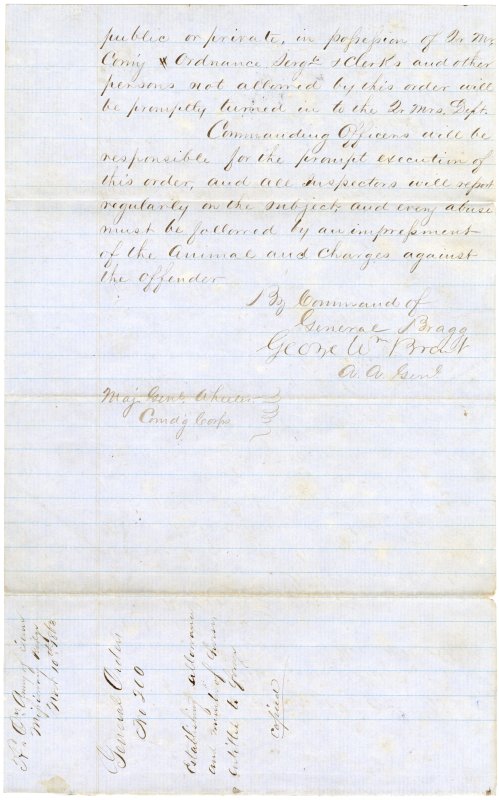 public or private, in possession of Qr Mr
Comy & Ordnance Sergts & Clerks and other
persons not allowed by this order will
be promptly turned in to the Qr Mrs. Dept.
Commanding Officers will be
responsible for the prompt execution of
this order, and all Inspectors will report
regularly on the subject, and every abuse
must be followed by an impressment
of the Animal and Charges against
the offender
By Command of
General Bragg
George Wm Brent
A. A. Genl
Maj. Genl Wheeler
Comd'g Corps
Hd Qrs Army of Tenn
Missionary Ridge
Nov 10th 1863
General Orders
No 200
Establishing allowance
and number of
entitled to forage
Copied